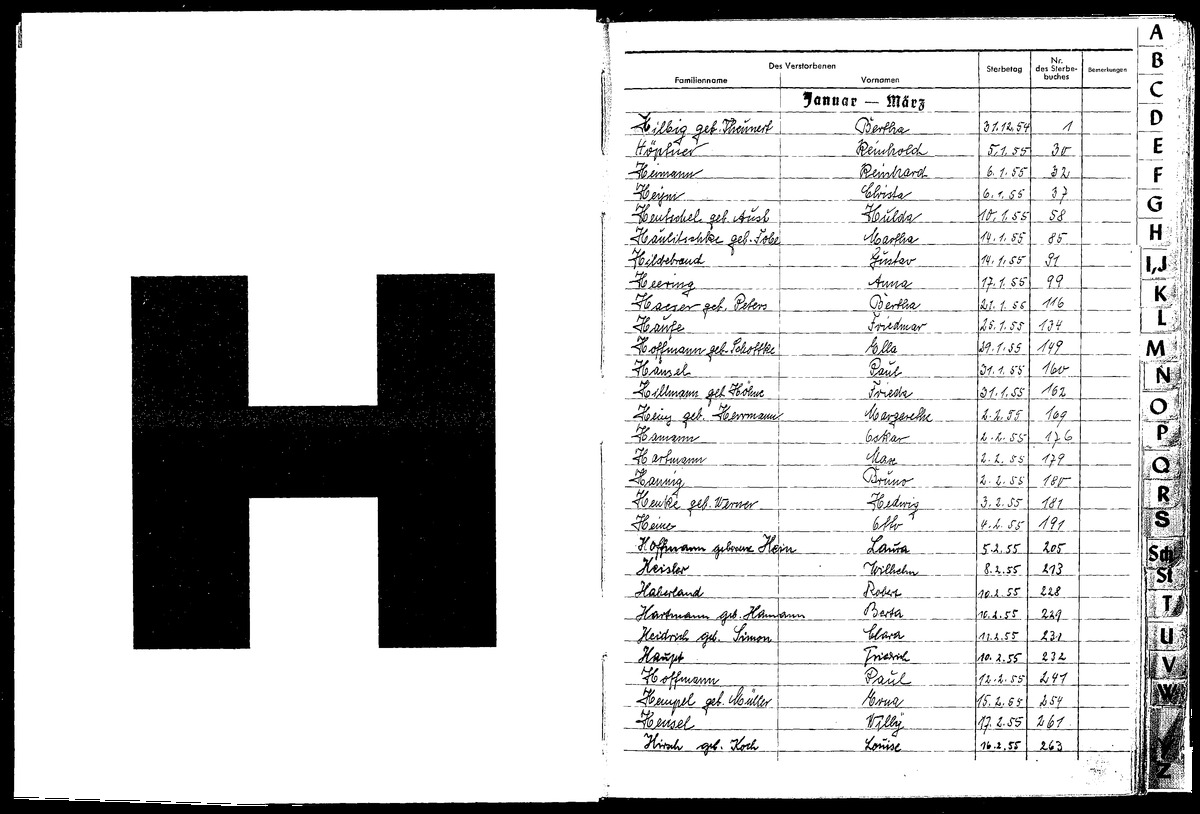 H
Des Verstorbenen
Familienname Vornamen Sterbetag Nr. des Sterbe-buches Bemerkungen
Januar — März
Hilbig geb. Theunert Bertha 31.12.54 1
Höptner Reinhold 5.1.55 30
Heimann Reinhard 6.1.55 32
Heyn Christa 6.1.55 37
Hentschel geb. Aust Hulda 10.1.55 58
Haulitschke geb. Tobe Martha 14.1.55 85
Hildebrand Gustav 14.1.55 91
Heering Anna 17.1.55 99
Haeser geb. Peters Bertha 21.1.55 116
Haufe Friedmar 25.1.55 134
Hoffmann geb. Schoffke Ella 29.1.55 149
Hänsel Paul 31.1.55 160
Hillmann geb Höhne Frieda 31.1.55 162
Heinz geb. Herrmann Margarethe 2.2.55 169
Hamann Oskar 2.2.55 176
Hartmann Max 2.2.55 179
Hannig Bruno 2.2.55 180
Henke geb. Werner Hedwig 3.2.55 181
Heine Otto 4.2.55 191
Hoffmann geborene Hein Laura 5.2.55 205
Heisler Wilhelm 8.2.55 213
Haberland Robert 10.2.55 228
Hartmann geb. Hamann Berta 10.2.55 229
Heidrich geb. Simon Clara 11.2.55 231
Haupt Friedrich 10.2.55 232
Hoffmann Paul 12.2.55 241
Hempel geb. Müller Erna 15.2.55 254
Hensel Willy 17.2.55 261
Hirsch geb. Koch Louise 16.2.55 263
A
B
C
D
E
F
G
H
I,J
K
L
M
N
O
P
Q
R
S
Sch
St
T
U
V
W
Z